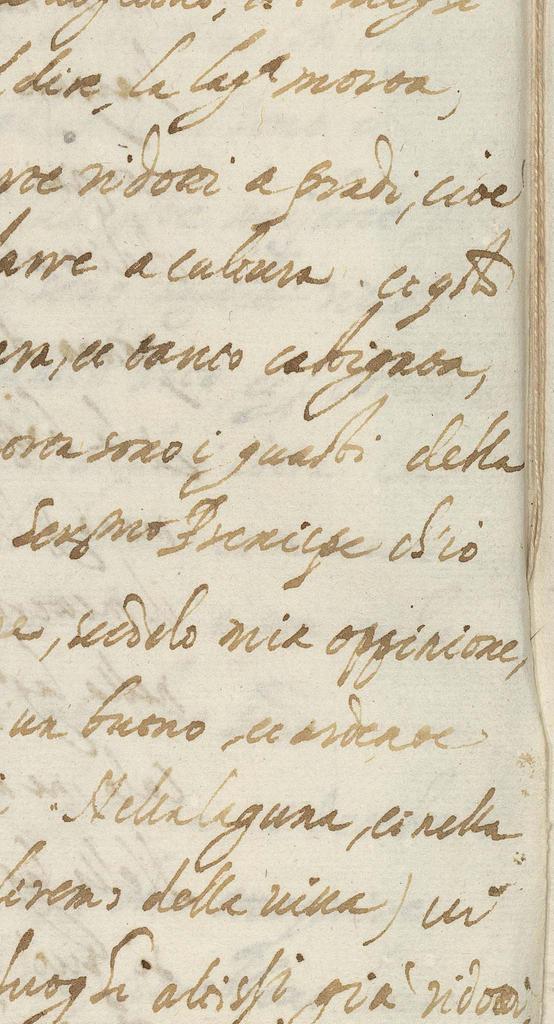 dire, la lag.a morta,
ridotti a gradi, cioè
a cultura. et q.sto
et tanto castigata,
sono i guasti della
Ser.mo Prencipe ch'io
secondo mia oppinione,
un buono, et ardente
Nella laguna, et nella
diremo della uitta) ui
luoghi altissi già ridotti